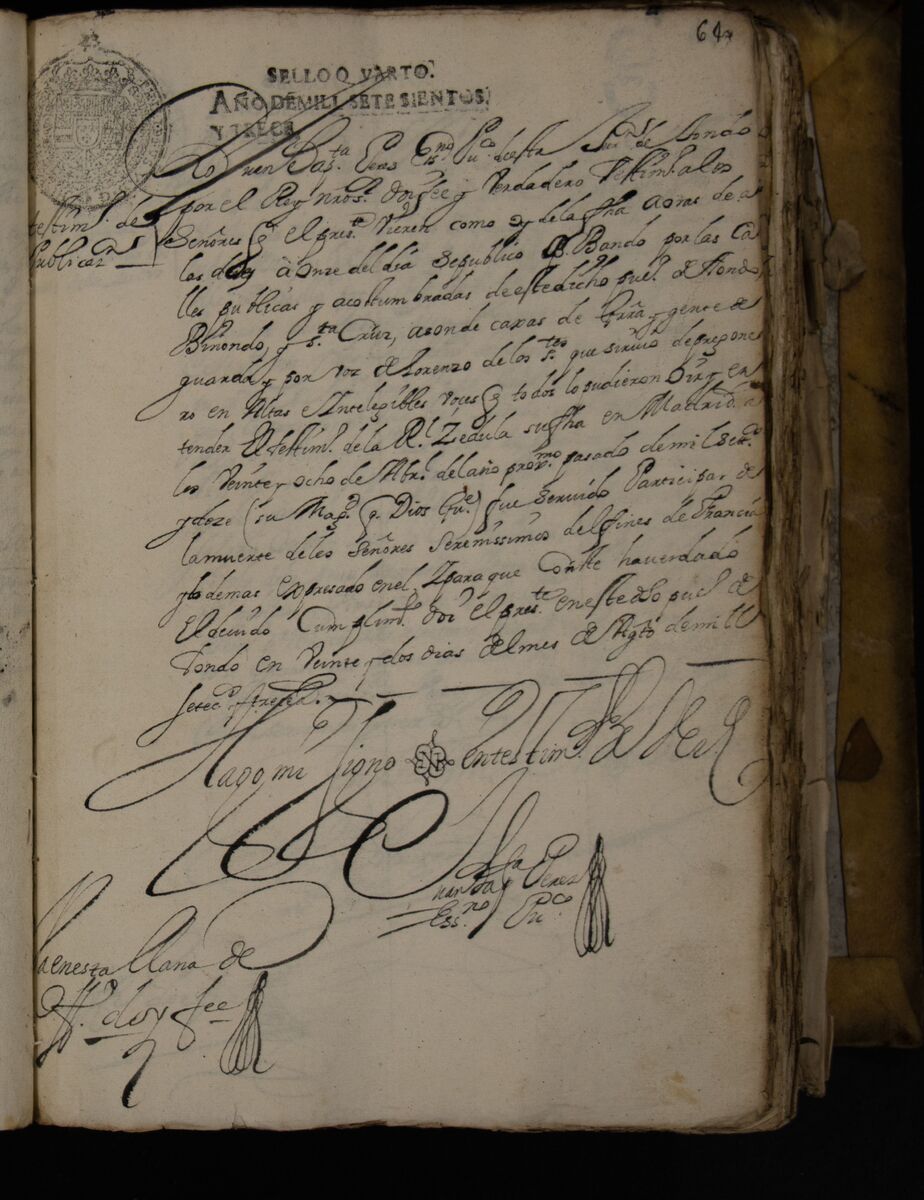 64
SELLO QVARTO.
AÑO DE MILL SETESIENTOS,
Y TRECE.
Yo Juan Bap.ta Perez Ess.no Pu.co desta Jur.on de Tondo
testim.o de
Publicaz.on
por el Rey nro s.r doi fee y Verdadero Testim.o a los
Señores q el pres.te Vieren como oy dela fha aoras de a
las diez â onze del dia se publico Bando por las Ca
lles publicas y acostumbradas de este dicho pue.o de Tondo
Binondo, y S.ta Cruz, a son de caxas de Grrâ, y gente de
guarda y por voz de Lorenzo de los S.tos que sirvio de pregone
ro en Altas e Intelegibles voces q todos lo pudieron Oir y en
tender El testim.o de la R.l Zedula su fha en Madrid a
los Veinte y ocho de Abr.l del año prox.mo pasado de mil Setec.os
y doze (su Mag.d q. Dios Gu.e) fue servido Participar de
la muerte delos Señores Serenissimos delfines de Francia
y lo demas expresado en el, Y para que Conste haverdado
El devido Cumplim.to doi el pres.te en este dho pue.o de
Tondo en Veinte y dos dias del mes de Agto de mill
setec.os y trece a.s
Hago mi signo en testim.o de Verd.
Juan Bap.ta Perez
Ess.no Pu.co
Va en esta llana de
off.o doy fee